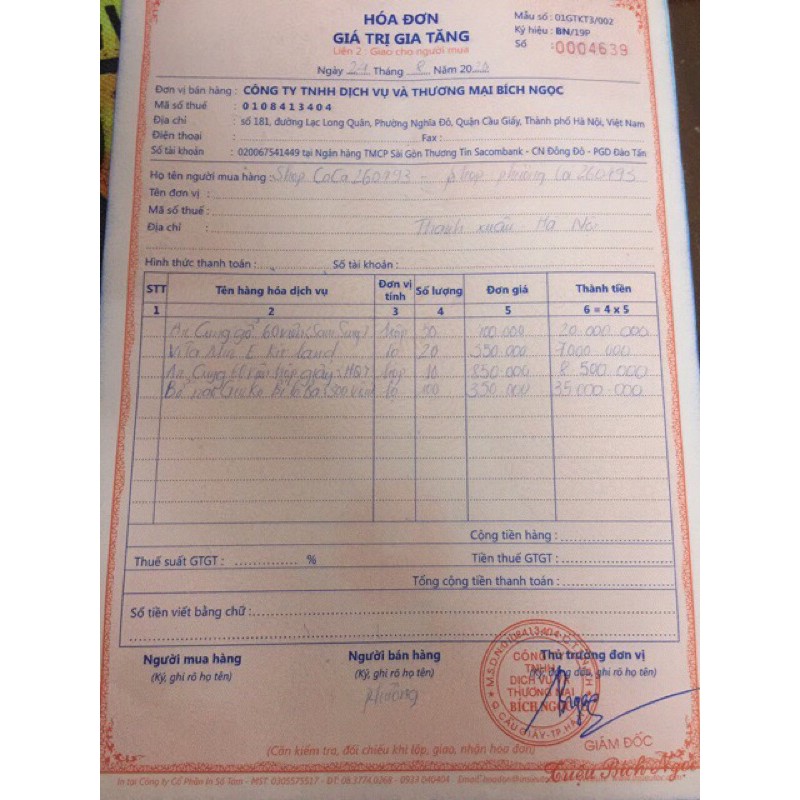 HÓA ĐƠN
GIÁ TRỊ GIA TĂNG
Liên 2 : Giao cho người mua
Mẫu số : 01GTKT3/002
Ký hiệu : BN/19P
Số :0004639
Ngày 24 Tháng 8 Năm 2020
Đơn vị bán hàng : CÔNG TY TNHH DỊCH VỤ VÀ THƯƠNG MẠI BÍCH NGỌC
Mã số thuế : 0108413404
Địa chỉ : số 181, đường Lạc Long Quân, Phường Nghĩa Đô, Quận Cầu Giấy, Thành phố Hà Nội, Việt Nam
Điện thoại : Fax :
Số tài khoản : 020067541449 tại Ngân hàng TMCP Sài Gòn Thương Tín Sacombank - CN Đông Đô - PGD Đào Tấn
Họ tên người mua hàng : Shop CoCa 260493 - Shop phương Ca 260493
Tên đơn vị :
Mã số thuế :
Địa chỉ : Thanh xuân Hà Nội
Hình thức thanh toán : Số tài khoản :
STT Tên hàng hóa dịch vụ Đơn vị tính Số lượng Đơn giá Thành tiền
1 2 3 4 5 6 = 4 x 5
An Cung gỗ 60 viên (Sam Sung) hộp 100.000 20 000 000
Vita Min E Kit land lọ 20 350 000 7000 000
An Cung 60 viên hộp giấy HQ hộp 10 850 000 8 500 000
Bổ não lọ 100 350 000 35 000 000
Cộng tiền hàng :
Thuế suất GTGT : % Tiền thuế GTGT :
Tổng cộng tiền thanh toán :
Số tiền viết bằng chữ :
Người mua hàng Người bán hàng Thủ trưởng đơn vị
(Ký, ghi rõ họ tên) (Ký, ghi rõ họ tên) (Ký, đóng dấu, ghi rõ họ tên)
Phương
M.S.D.N:0108413404-C.T.T.N.H.H
CÔNG TY
TNHH
DỊCH VỤ VÀ
THƯƠNG MẠI
BÍCH NGỌC
Q. CẦU GIẤY-TP.HÀ
GIÁM ĐỐC
Triệu Bích Ngọc
(Cần kiểm tra, đối chiếu khi lập, giao, nhận hóa đơn)
In tại Công ty Cổ Phần In Số Tám - MST: 0305575517 - ĐT: 08.3774.0268 - 0933 040404